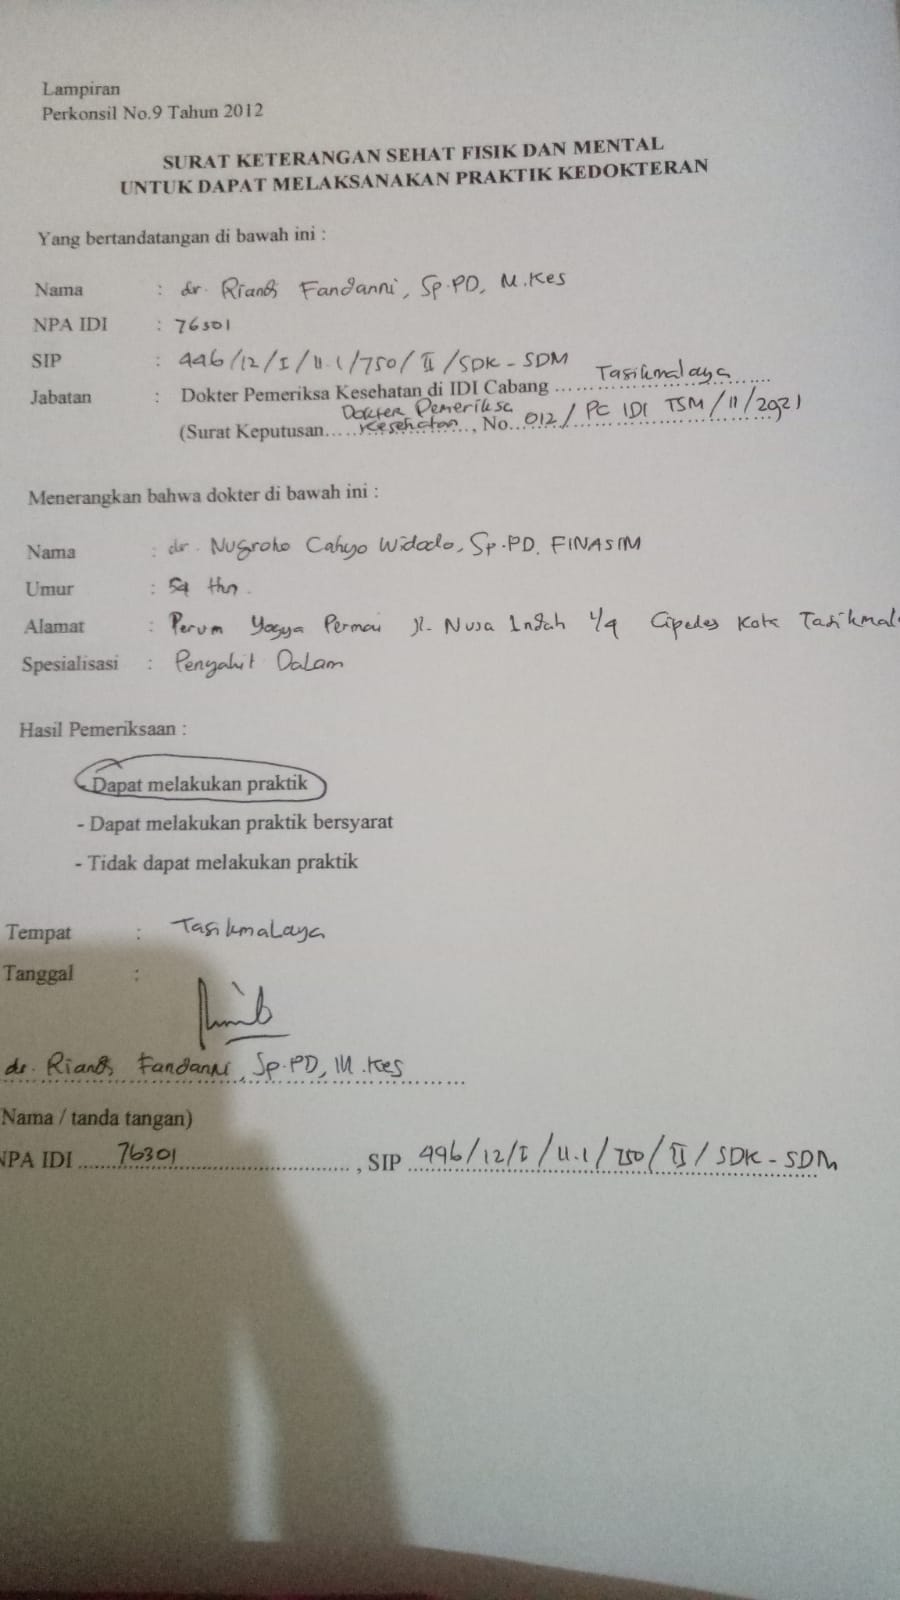 Lampiran
Perkonsil No.9 Tahun 2012
SURAT KETERANGAN SEHAT FISIK DAN MENTAL
UNTUK DAPAT MELAKSANAKAN PRAKTIK KEDOKTERAN
Yang bertandatangan di bawah ini :
Nama : dr. Fandanni, Sp.PD, M.Kes
NPA IDI : 76301
SIP : 446/12/I/11.1/750/II/SDK-SDM
Jabatan : Dokter Pemeriksa Kesehatan di IDI Cabang ... Tasikmalaya ......
(Surat Keputusan..... Dokter Pemeriksa Kesehatan .., No...012/ PC IDI TSM/11/2021
Menerangkan bahwa dokter di bawah ini :
Nama : dr. Nugroho Cahyo Widodo, Sp.PD. FINASIM
Umur : thn.
Alamat : Perum Yogya Permai Jl. Nusa Indah Cipedes Kota Tasikmal
Spesialisasi : Penyakit Dalam
Hasil Pemeriksaan :
- Dapat melakukan praktik
- Dapat melakukan praktik bersyarat
- Tidak dapat melakukan praktik
Tempat : Tasikmalaya
Tanggal :
dr. Fandanni, Sp.PD, M.Kes
Nama / tanda tangan)
NPA IDI ..... 76301 ..............................., SIP 446/12/I/11.1/750/II/SDK-SDM